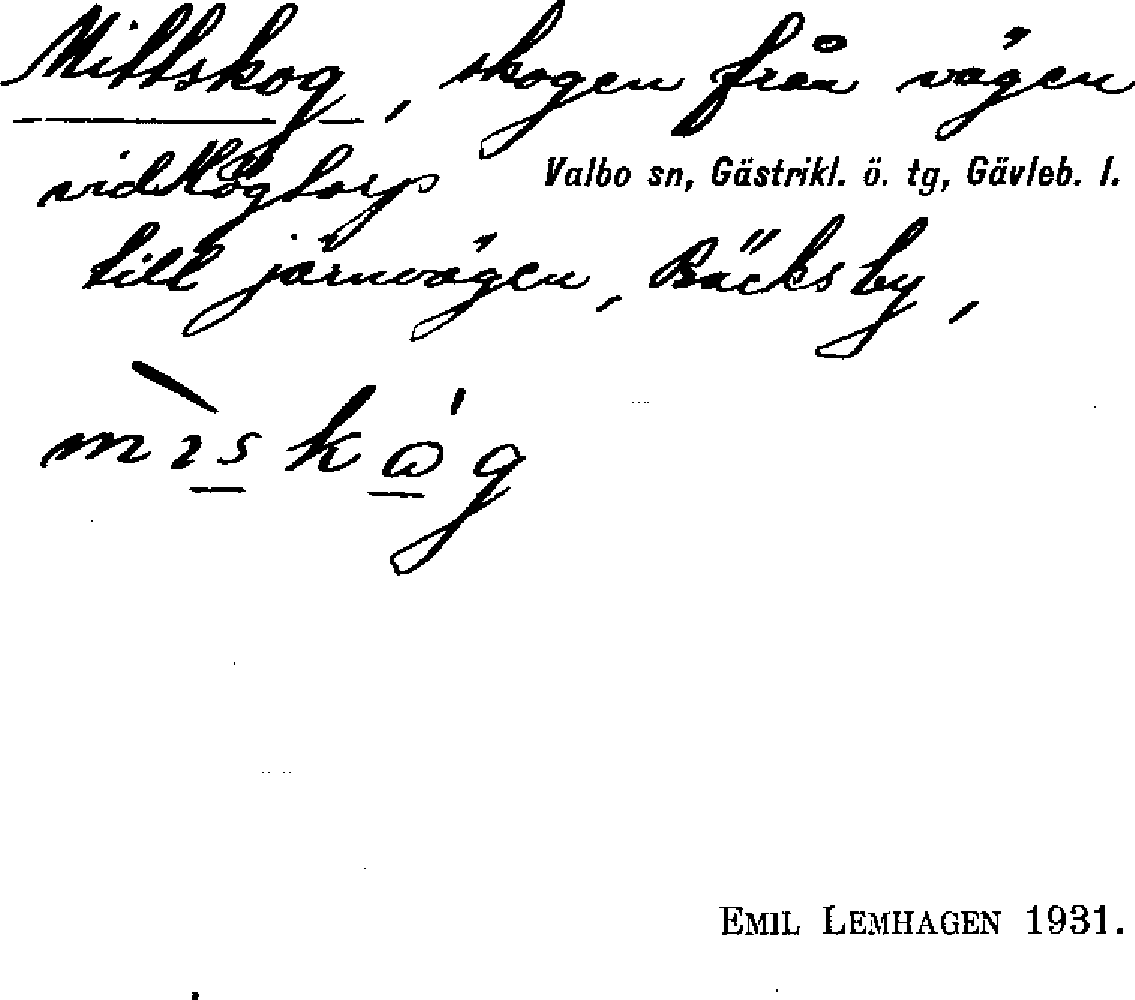 Mittskog, skogen från vägen
vid Högtorp
Valbo sn, Gästrikl. ö. tg, Gävleb. l.
till järnvägen, Bäcksby,
EMIL LEMHAGEN 1931.